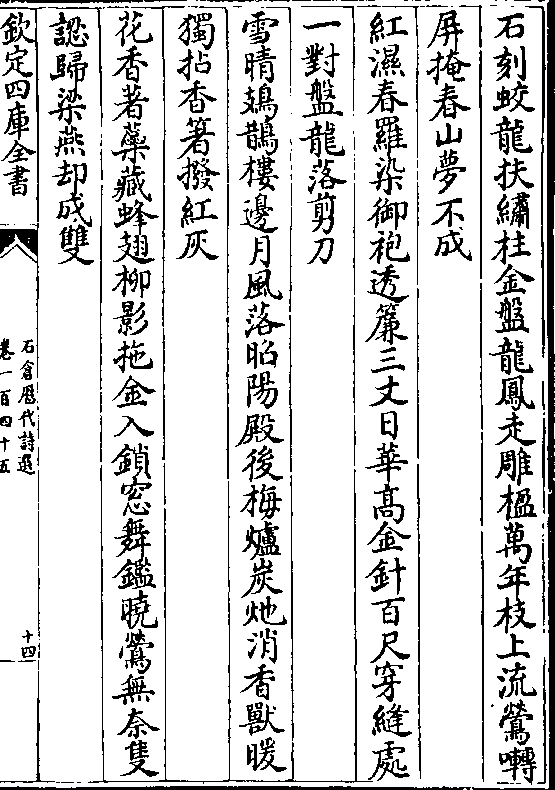 石刻蛟龍扶繡柱金盤龍鳳走雕楹萬年枝上流鶯囀
屏掩春山夢不成
紅濕春羅染御袍透簾三丈日華高金針百尺穿縫處
一對盤龍落剪刀
雪晴鳷鵲樓邊月風落昭陽殿後梅爐炭灺消香獸暖
獨拈香箸撥紅灰
花香著藥藏蜂翅柳影拖金入鎖窓舞鑑曉鶯無奈隻
認歸梁燕却成雙
欽定四庫全書
石倉歷代詩選
卷一百四十五
十四